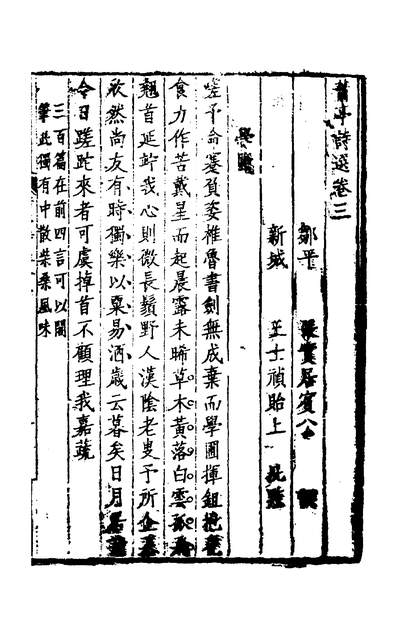 蕭亭詩選卷三
鄒平 張實居賓公
新城 王士禎貽上 批點
學圃
嗟予命蹇負姿椎魯書劍無成棄而學圃揮鉏抱甕
食力作苦戴星而起晨露未晞草木黃落白雲孤飛
翹首延竚我心則微長鬚野人漢陰老叟予所企慕
欣然尚友有時獨樂以粟易酒歲云暮矣日月
今日蹉跎來者可虞掉首不顧理我嘉蔬
三百篇在前四言可以閣
筆此獨有中散柴桑風味